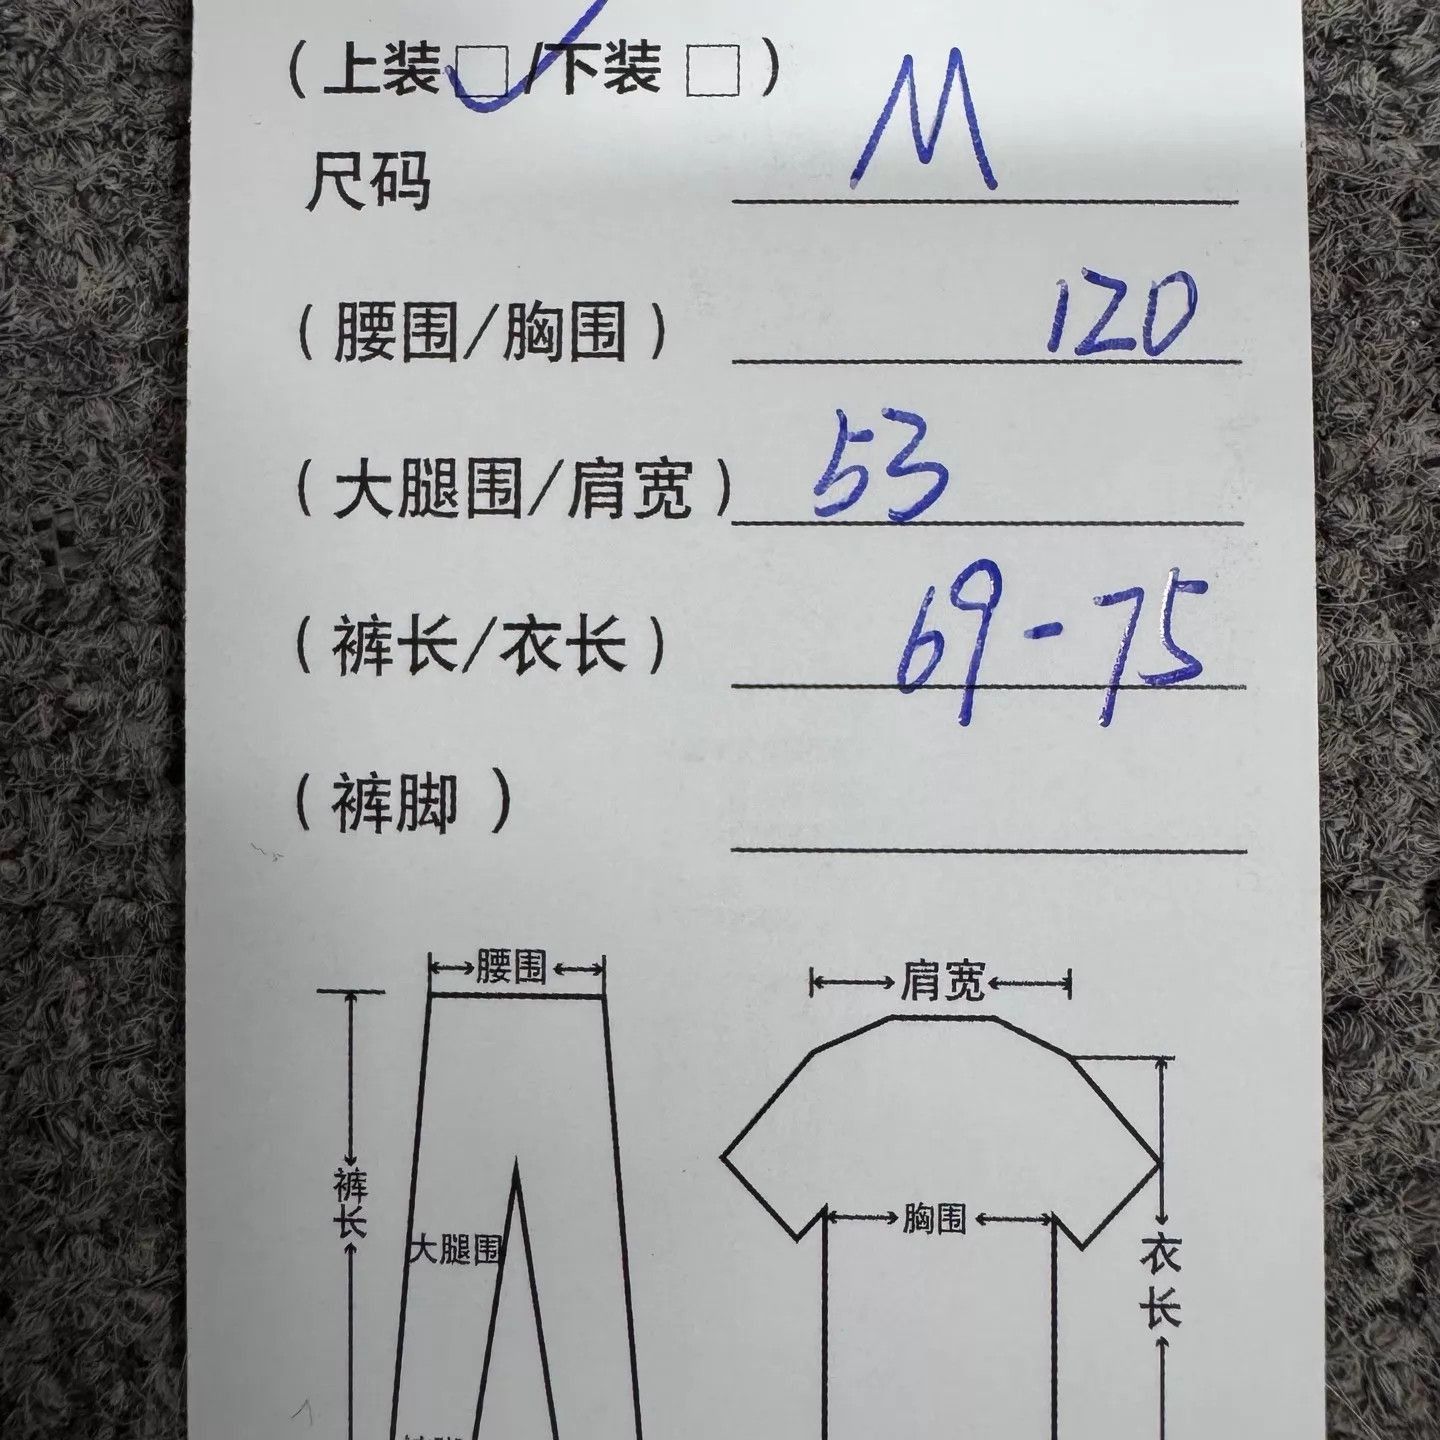 (上装□/下装□)
尺码 M
(腰围/胸围) 120
(大腿围/肩宽) 53
(裤长/衣长) 69-75
(裤脚)
腰围
肩宽
裤长
大腿围
胸围
衣长